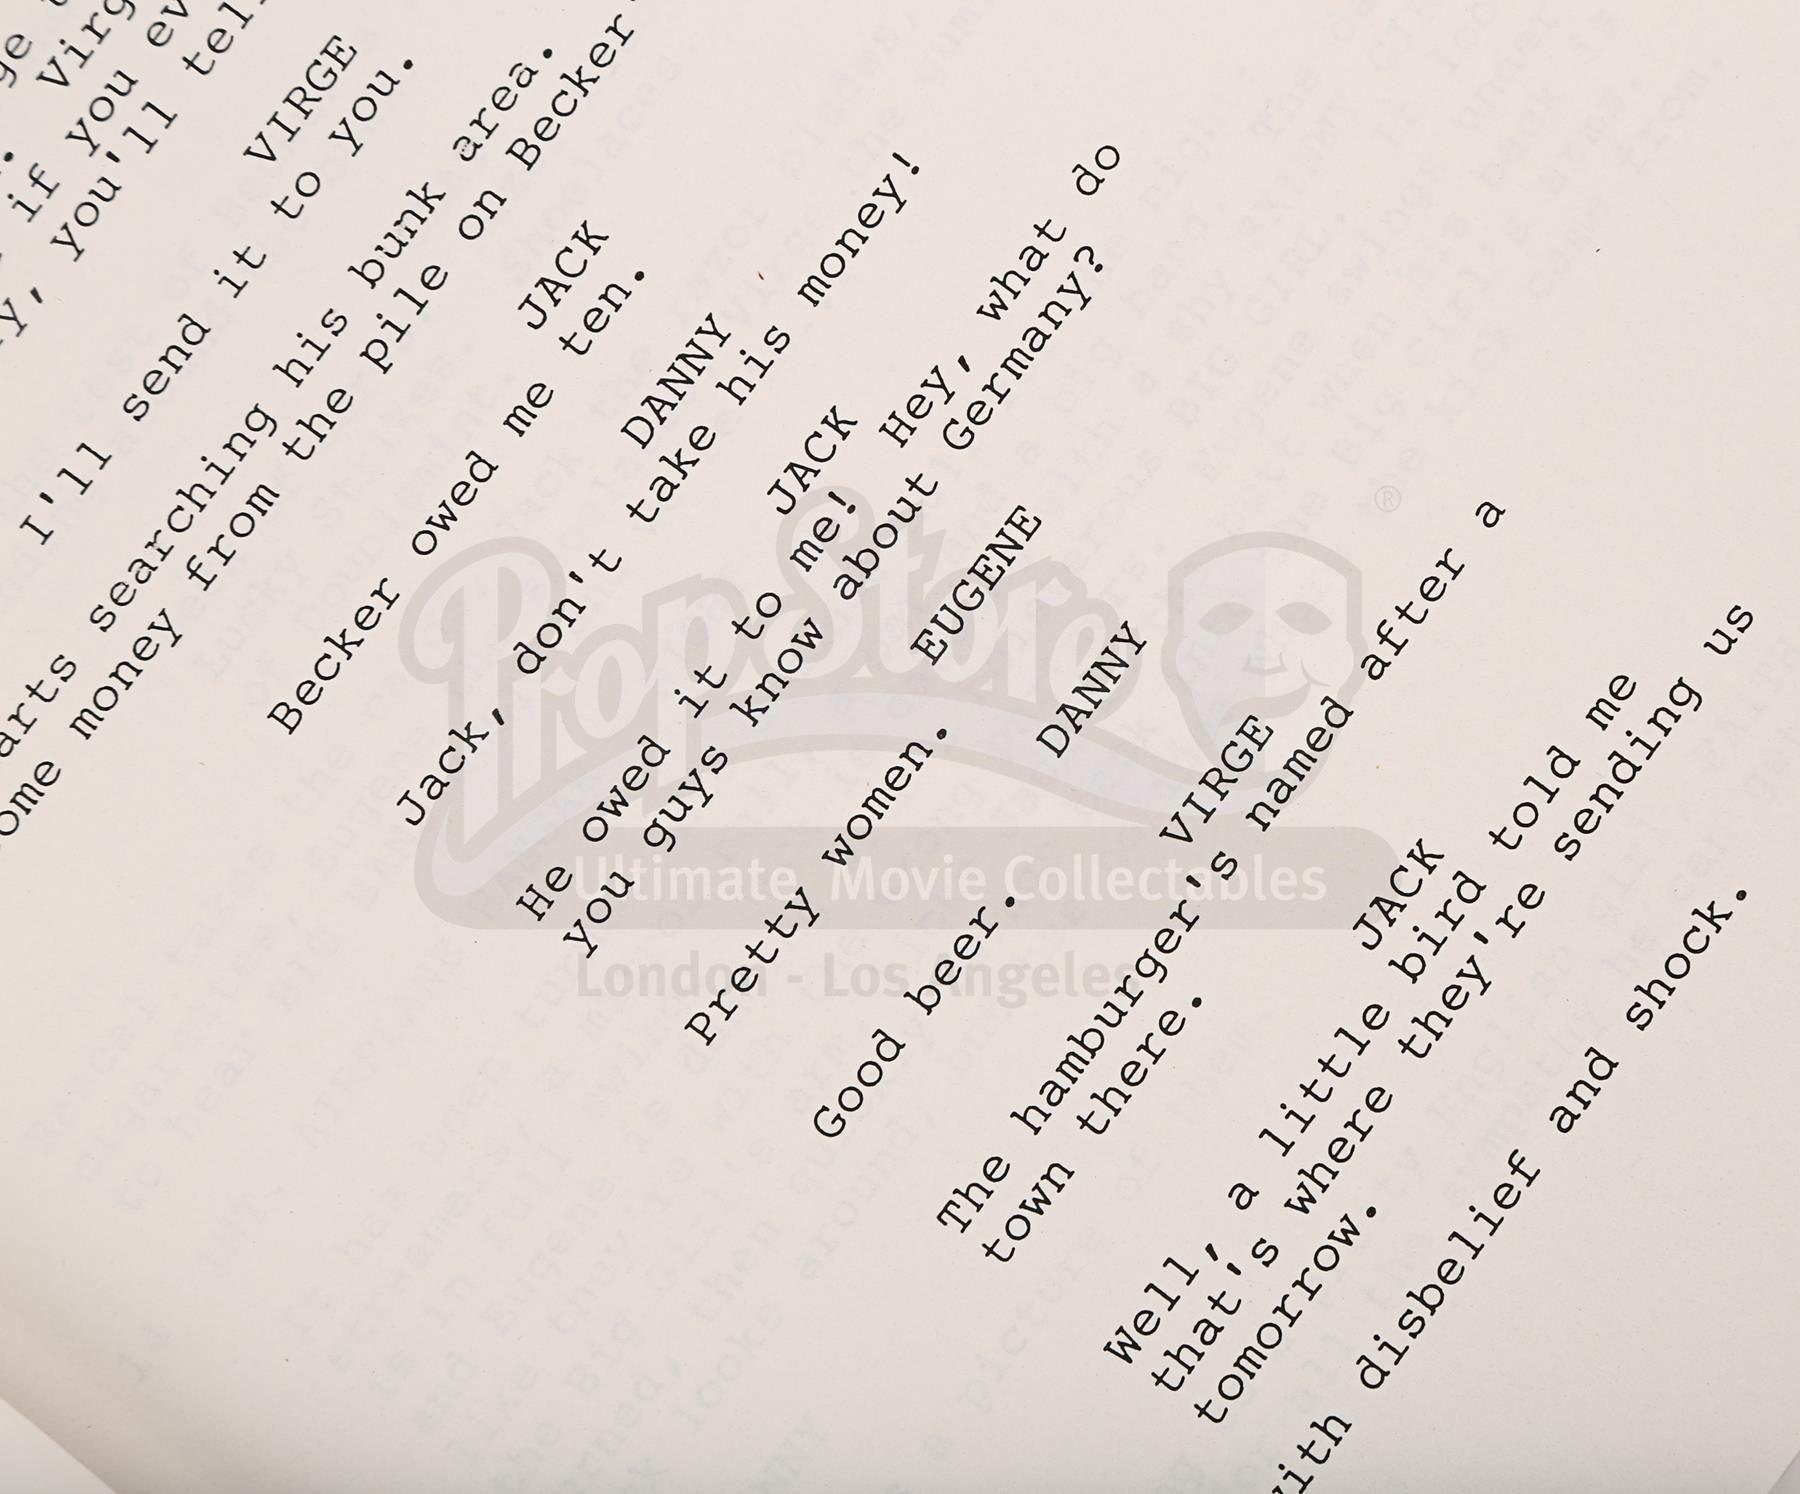 Virg
if you ev
you'll tell
VIRGE
I'll send it to you.
arts searching his bunk area.
ome money from the pile on Becker
JACK
Becker owed me ten.
DANNY
Jack, don't take his money!
JACK
He owed it to me! Hey, what do
you guys know about Germany?
EUGENE
Pretty women.
DANNY
Good beer.
VIRGE
The hamburger's named after a
town there.
JACK
Well, a little bird told me
that's where they're sending us
tomorrow.
with disbelief and shock.
PropStore
®
Ultimate Movie Collectables
London - Los Angeles